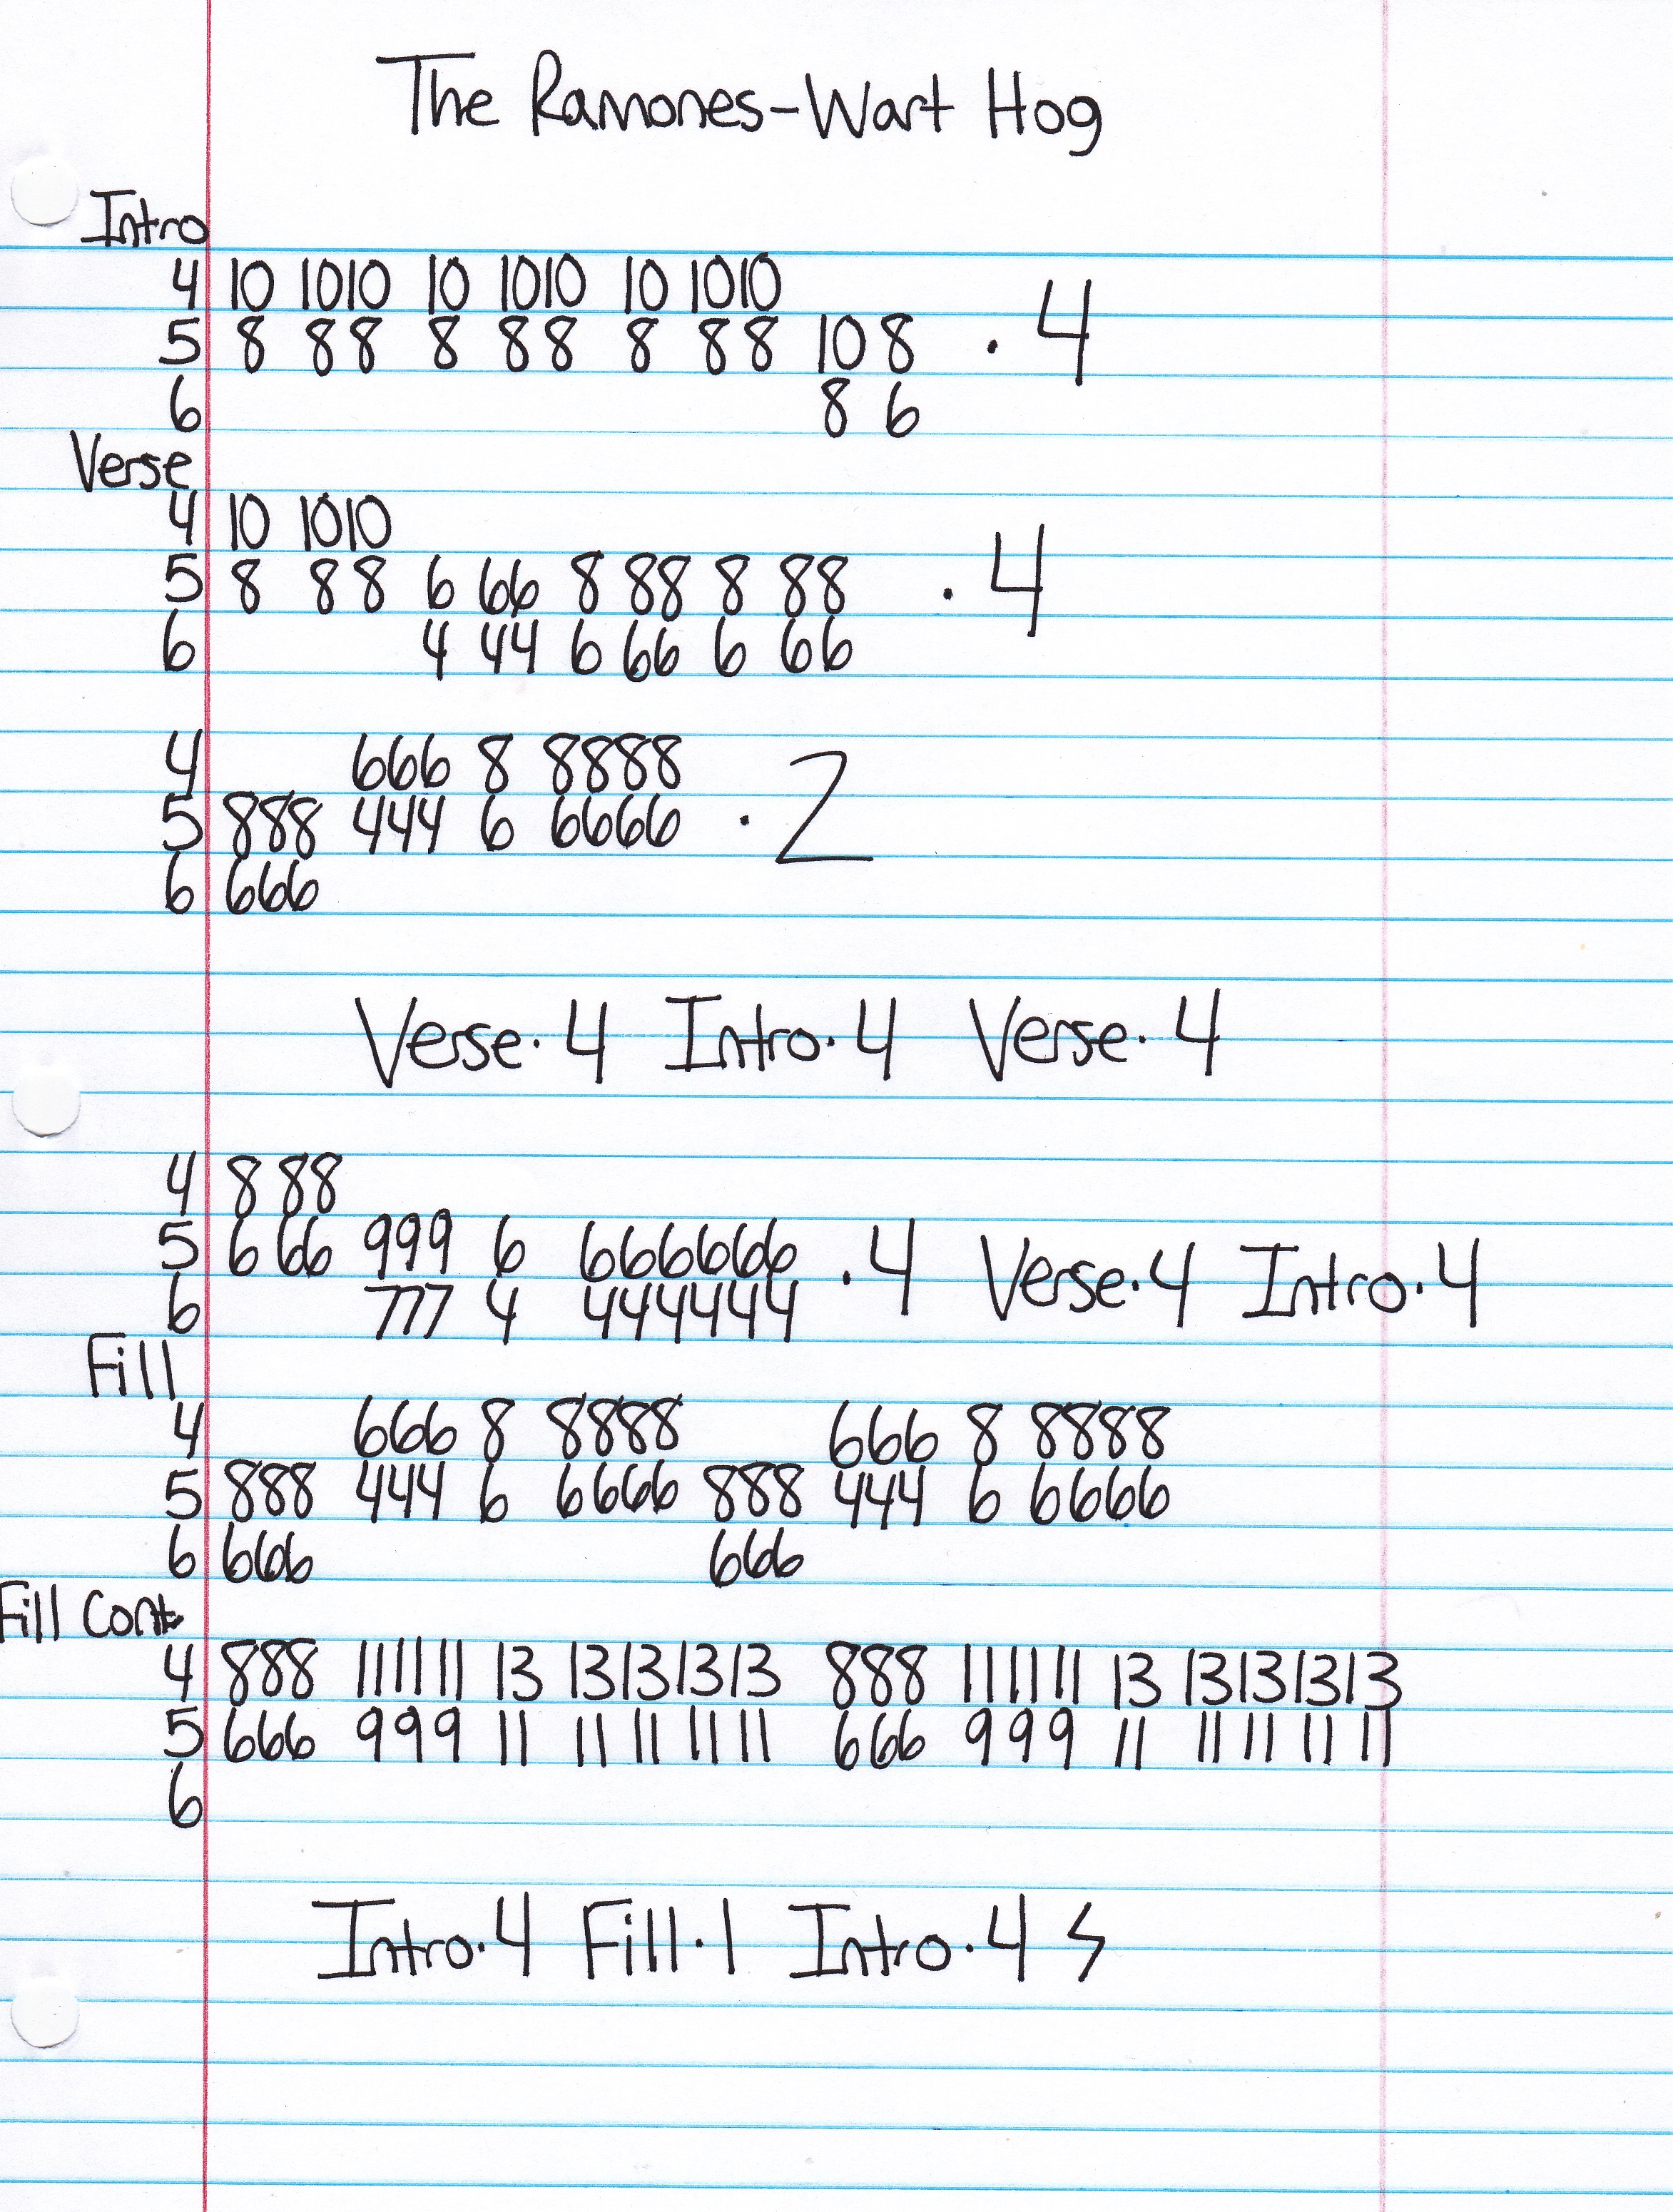 The Ramones-Wart Hog
Intro
4 10 1010 10 1010 10 1010
5 8 88 8 88 8 88 10 8 . 4
6 8 6
Verse
4 10 1010
5 8 88 6 66 8 888 8 88 . 4
6 4 44 6 66 6 66
4 666 8 8888
5 888 444 6 6666 . 2
6 666
Verse. 4 Intro. 4 Verse. 4
4 8 88
5 6 66 999 6 666666 . 4 Verse. 4 Intro. 4
6 777 4 444444
Fill
4 666 8 8888 666 8 8888
5 888 444 6 6666 888 444 6 6666
6 666 666
Fill Cont.
4 888 111111 13 13131313 888 111111 13 13131313
5 666 999 11 11 11 11 11 666 999 11 11 11 11 11
6
Intro. 4 Fill. 1 Intro. 4